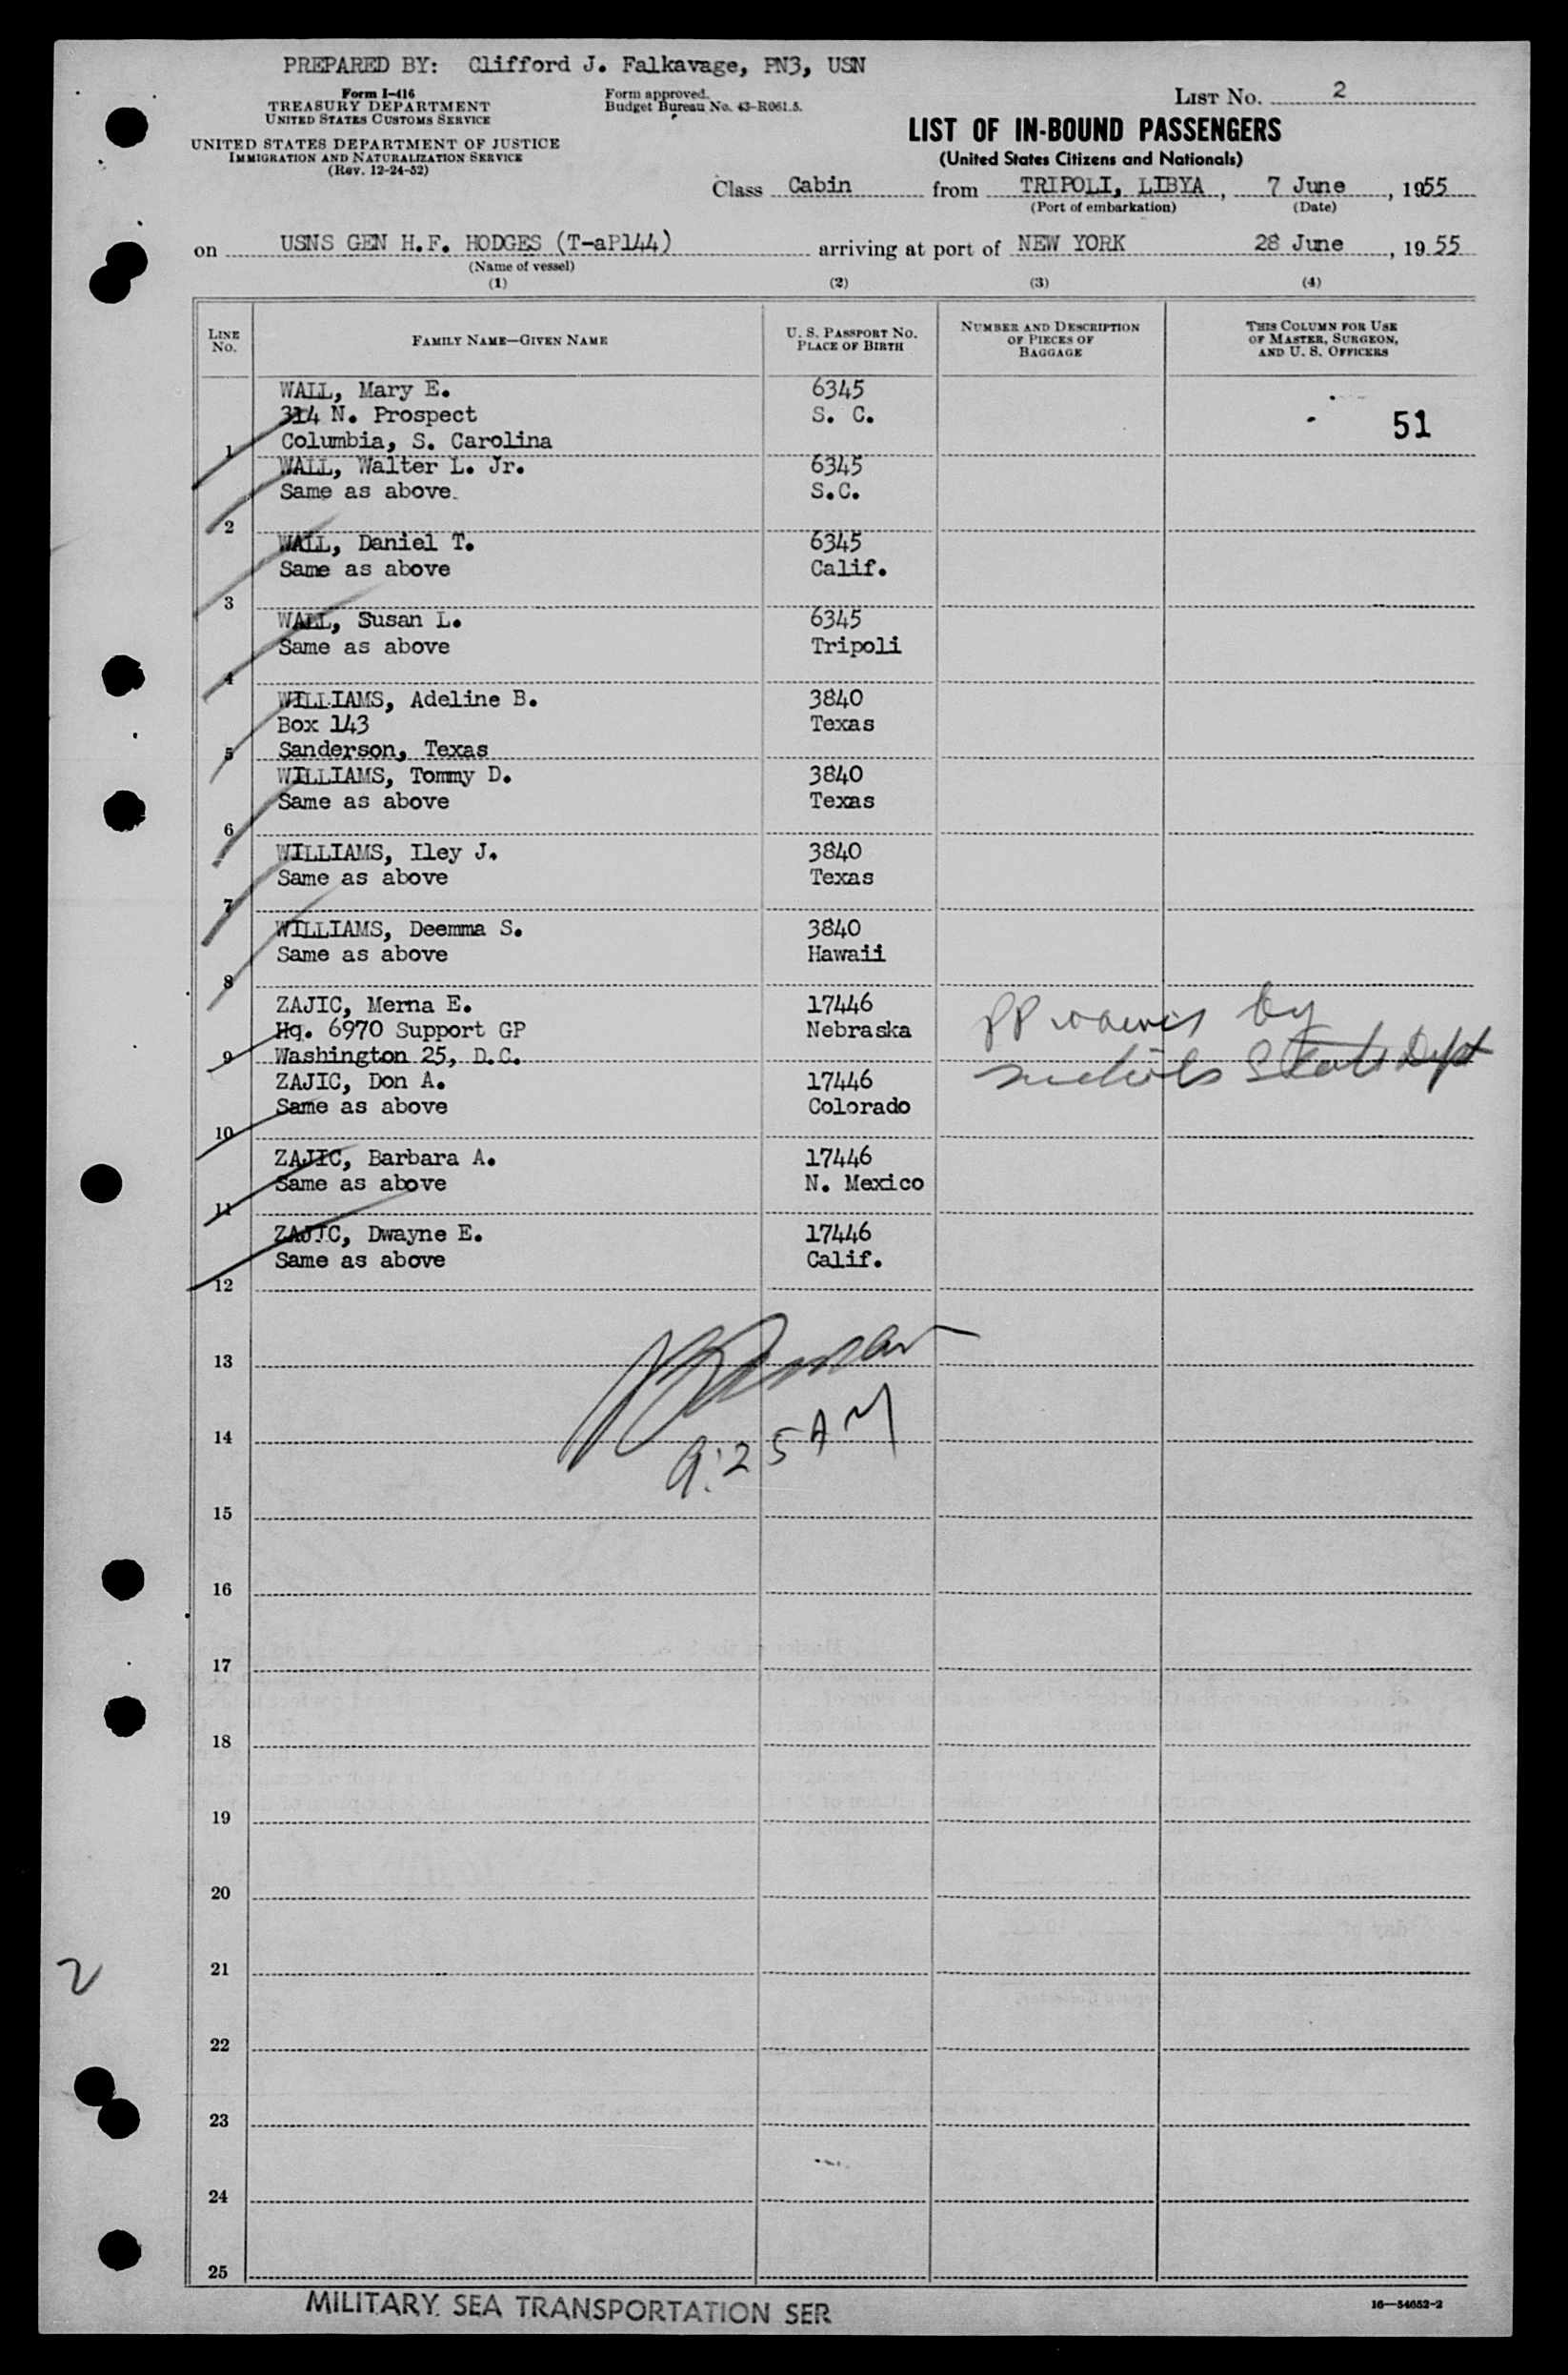 PREPARED BY: Clifford J. Falkavage, PN3, USN
Form I-416
TREASURY DEPARTMENT
UNITED STATES CUSTOMS SERVICE
UNITED STATES DEPARTMENT OF JUSTICE
IMMIGRATION AND NATURALIZATION SERVICE
(Rev. 12-24-52)
Form approved.
Budget Bureau No. 43-R061.5.
LIST NO. 2
LIST OF IN-BOUND PASSENGERS
(United States Citizens and Nationals)
Class Cabin from TRIPOLI, LIBYA, 7 June, 1955
(Port of embarkation) (Date)
on USNS GEN H.F. HODGES (T-aP144) arriving at port of NEW YORK 28 June, 1955
(Name of vessel)
(1) (2) (3) (4)
LINE NO. FAMILY NAME—GIVEN NAME U. S. PASSPORT NO. PLACE OF BIRTH NUMBER AND DESCRIPTION OF PIECES OF BAGGAGE THIS COLUMN FOR USE OF MASTER, SURGEON, AND U. S. OFFICERS
WALL, Mary E. 6345
314 N. Prospect S. C. 51
1 Columbia, S. Carolina
WALL, Walter L. Jr. 6345
Same as above. S.C.
2
WALL, Daniel T. 6345
Same as above Calif.
3
WALL, Susan L. 6345
Same as above Tripoli
4
WILLIAMS, Adeline B. 3840
Box 143 Texas
5 Sanderson, Texas
WILLIAMS, Tommy D. 3840
Same as above Texas
6
WILLIAMS, Iley J. 3840
Same as above Texas
7
WILLIAMS, Deemma S. 3840
Same as above Hawaii
8
ZAJIC, Merna E. 17446
Hq. 6970 Support GP Nebraska PP by
9 Washington 25, D.C. State Dept
ZAJIC, Don A. 17446
Same as above Colorado
10
ZAJIC, Barbara A. 17446
Same as above N. Mexico
11
ZAJIC, Dwayne E. 17446
Same as above Calif.
12
13
14
9:25 AM
15
16
17
18
19
20
21
2
22
23
24
25
MILITARY SEA TRANSPORTATION SER
16—54652-2